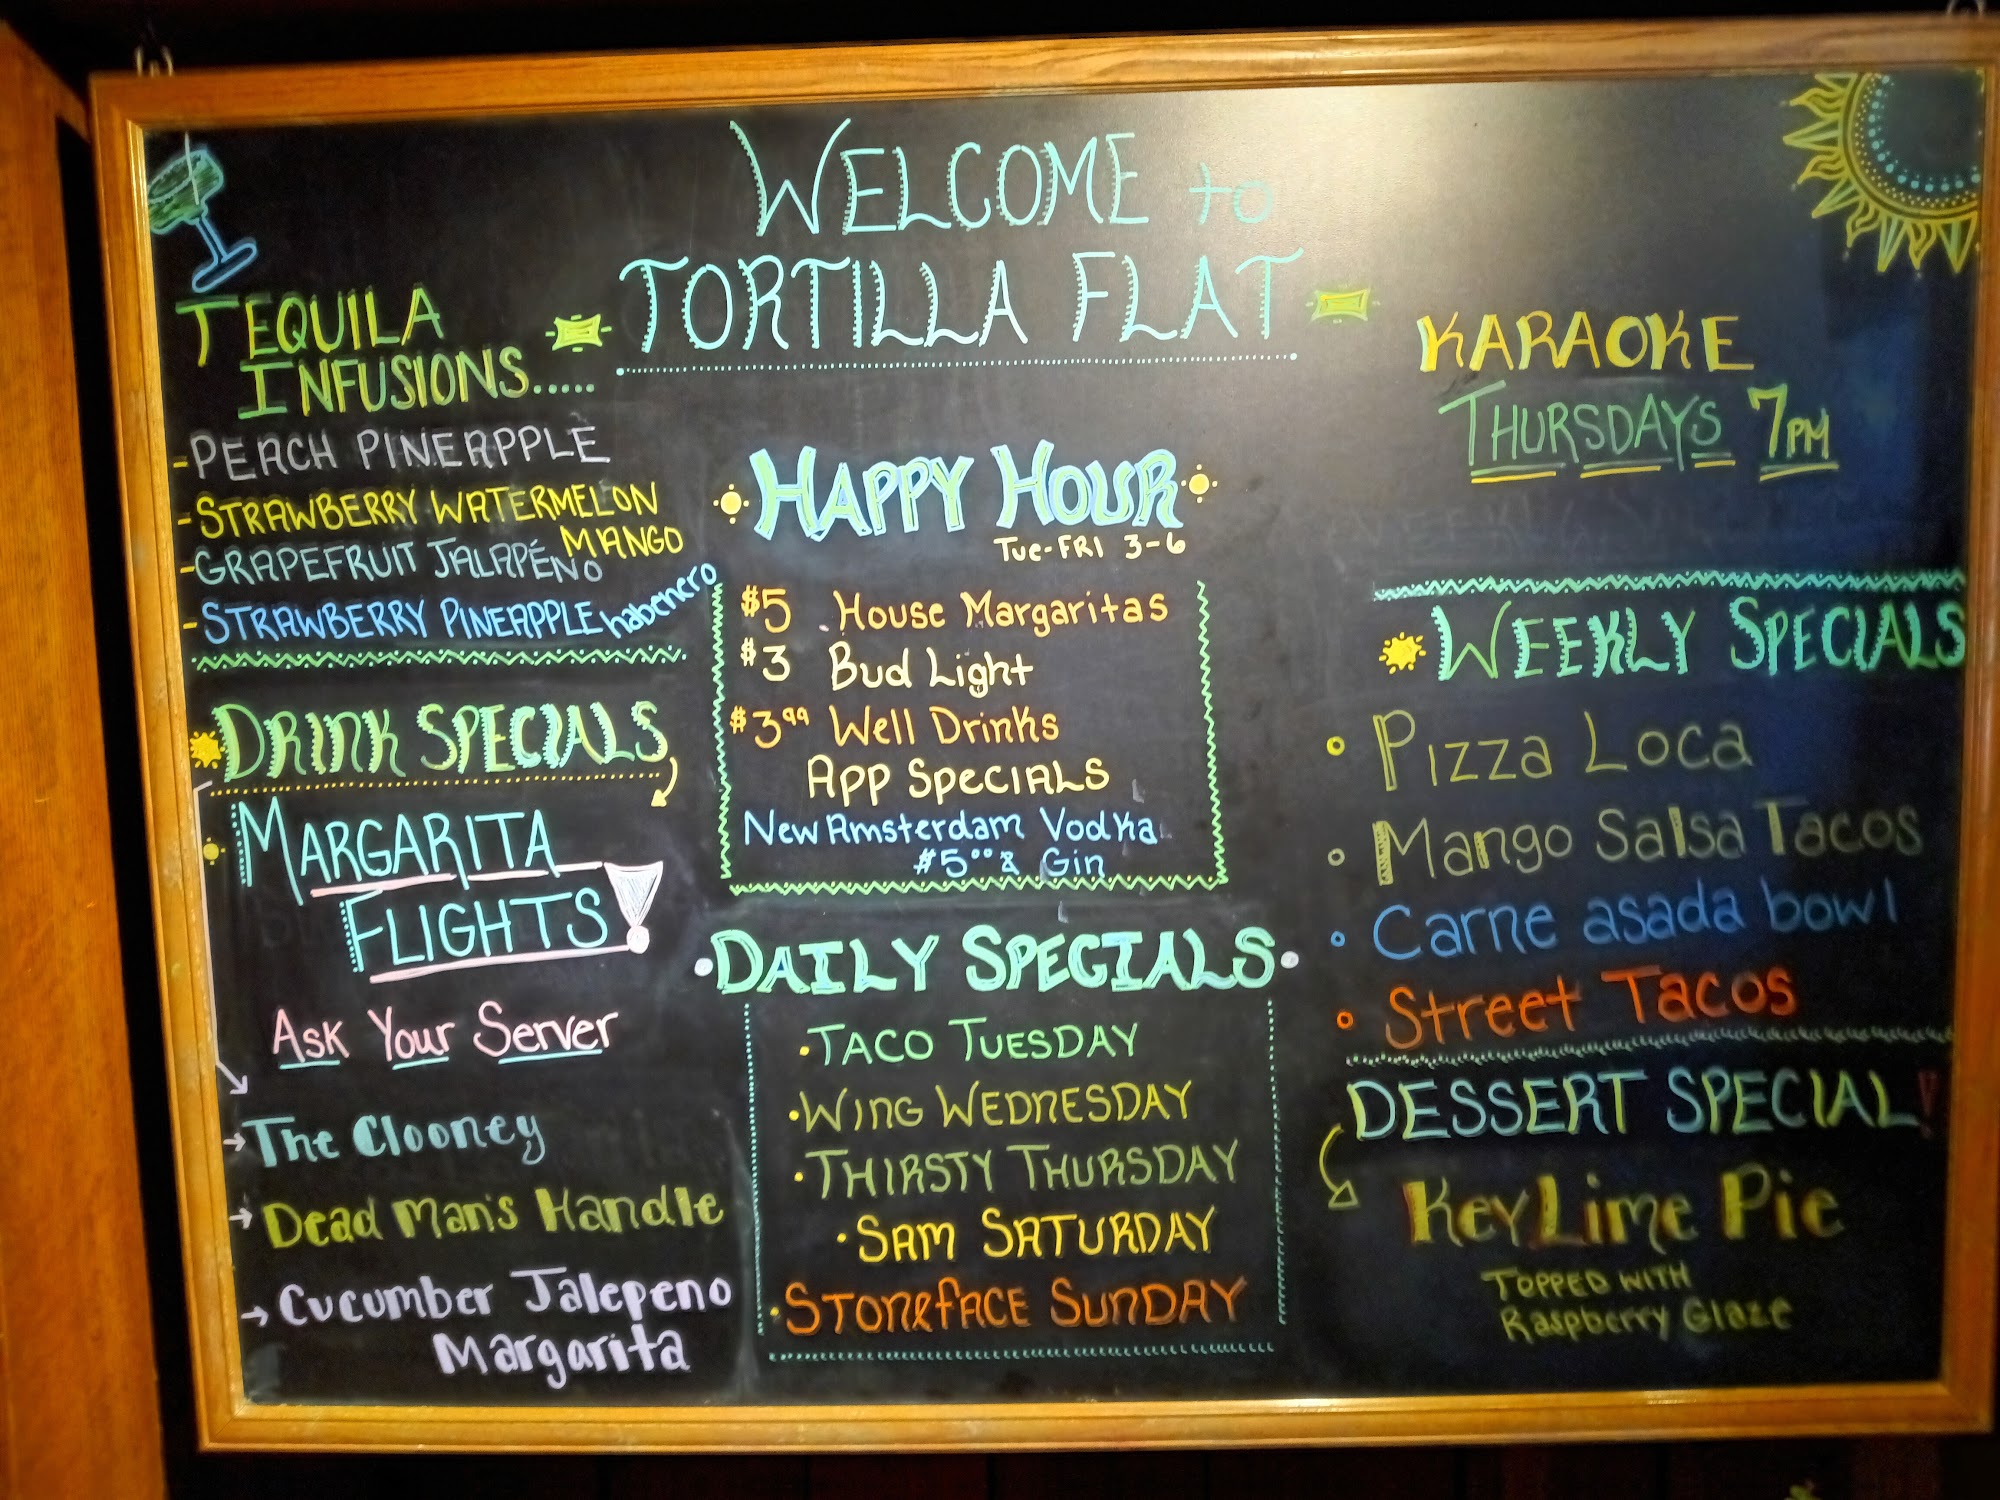 WELCOME to
TORTILLA FLAT
TEQUILA
INFUSIONS.....
- PEACH PINEAPPLE
- STRAWBERRY WATERMELON
MANGO
- GRAPEFRUIT JALAPÉNO
- STRAWBERRY PINEAPPLE habenero
DRINK SPECIALS
MARGARITA
FLIGHTS!
ASK YOUR SERVER
THE Clooney
Dead Man's Handle
Cucumber Jalepeno
Margarita
HAPPY HOUR
Tue-FRI 3-6
$5 House Margaritas
$3 Bud Light
$3.99 Well Drinks
APP SPECIALS
New Amsterdam Vodka
$5.00 & Gin
DAILY SPECIALS
• TACO TUESDAY
• WING WEDNESDAY
• THIRSTY THURSDAY
• SAM SATURDAY
• STONEFACE SUNDAY
KARAOKE
THURSDAYS 7PM
WEEKLY SPECIALS
• Pizza Loca
• Mango Salsa Tacos
• Carne asada bowl
• Street Tacos
DESSERT SPECIAL!!
Key Lime Pie
TOPPED WITH
Raspberry Glaze